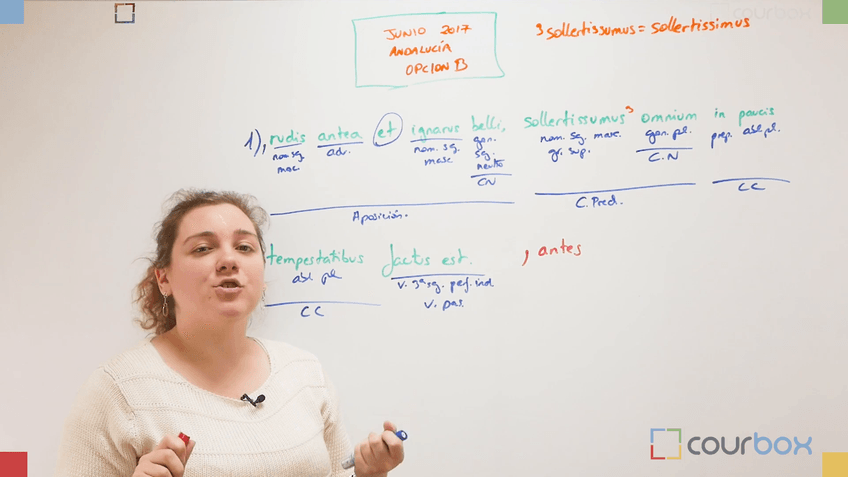 JUNIO 2017
ANDALUCÍA
OPCION B
3 sollertissumus = sollertissimus
1), rudis antea et ignarus belli, sollertissumus³ omnium in paucis
nom sg. masc. adv. nom. sg. masc gen. sg. neutro nom. sg. masc. gr. sup. gen. pl. prep. abl. pl.
CN C.N CC
Aposición. C. Pred.
tempestatibus factus est. , antes
abl pl v. 3ª sg. perf. ind v. pas.
CC
courbox
courbox